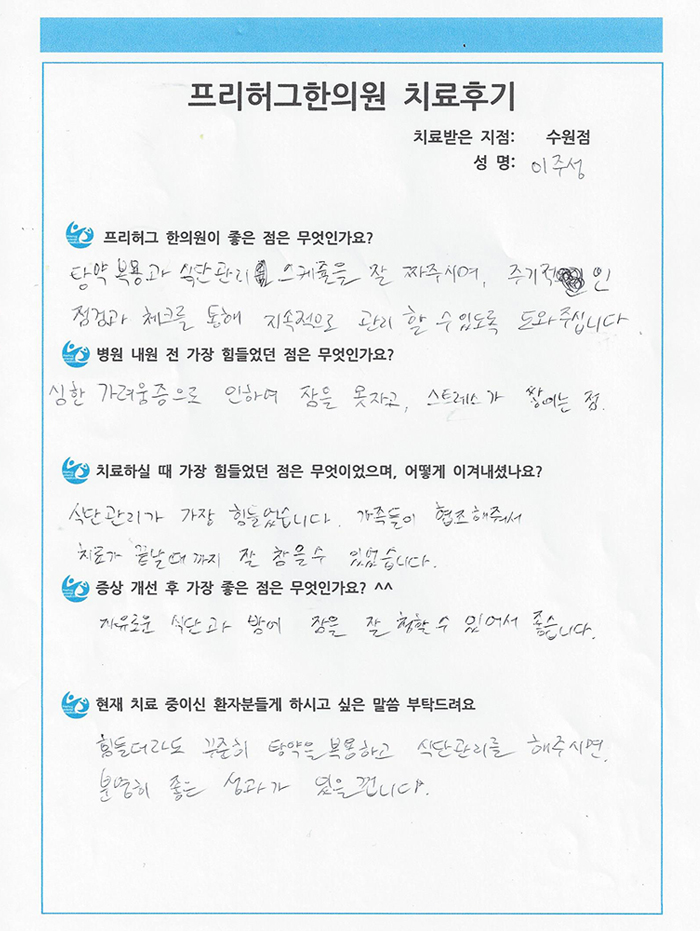 프리허그한의원 치료후기
치료받은 지점: 수원점
성 명: 이주성
프리허그 한의원이 좋은 점은 무엇인가요?
탕약 복용과 식단관리 스케쥴을 잘 짜주시며, 주기적인
점검과 체크를 통해 지속적으로 관리 할 수 있도록 도와주십니다
병원 내원 전 가장 힘들었던 점은 무엇인가요?
심한 가려움증으로 인하여 잠을 못자고, 스트레스가 쌓이는 점.
치료하실 때 가장 힘들었던 점은 무엇이었으며, 어떻게 이겨내셨나요?
식단관리가 가장 힘들었습니다. 가족들이 협조해줘서
치료가 끝날때 까지 잘 참을수 있었습니다.
증상 개선 후 가장 좋은 점은 무엇인가요? ^^
자유로운 식단과 밤에 잠을 잘 청할 수 있어서 좋습니다.
현재 치료 중이신 환자분들게 하시고 싶은 말씀 부탁드려요
힘들더라도 꾸준히 탕약을 복용하고 식단관리를 해주시면.
분명히 좋은 성과가 있을껍니다.